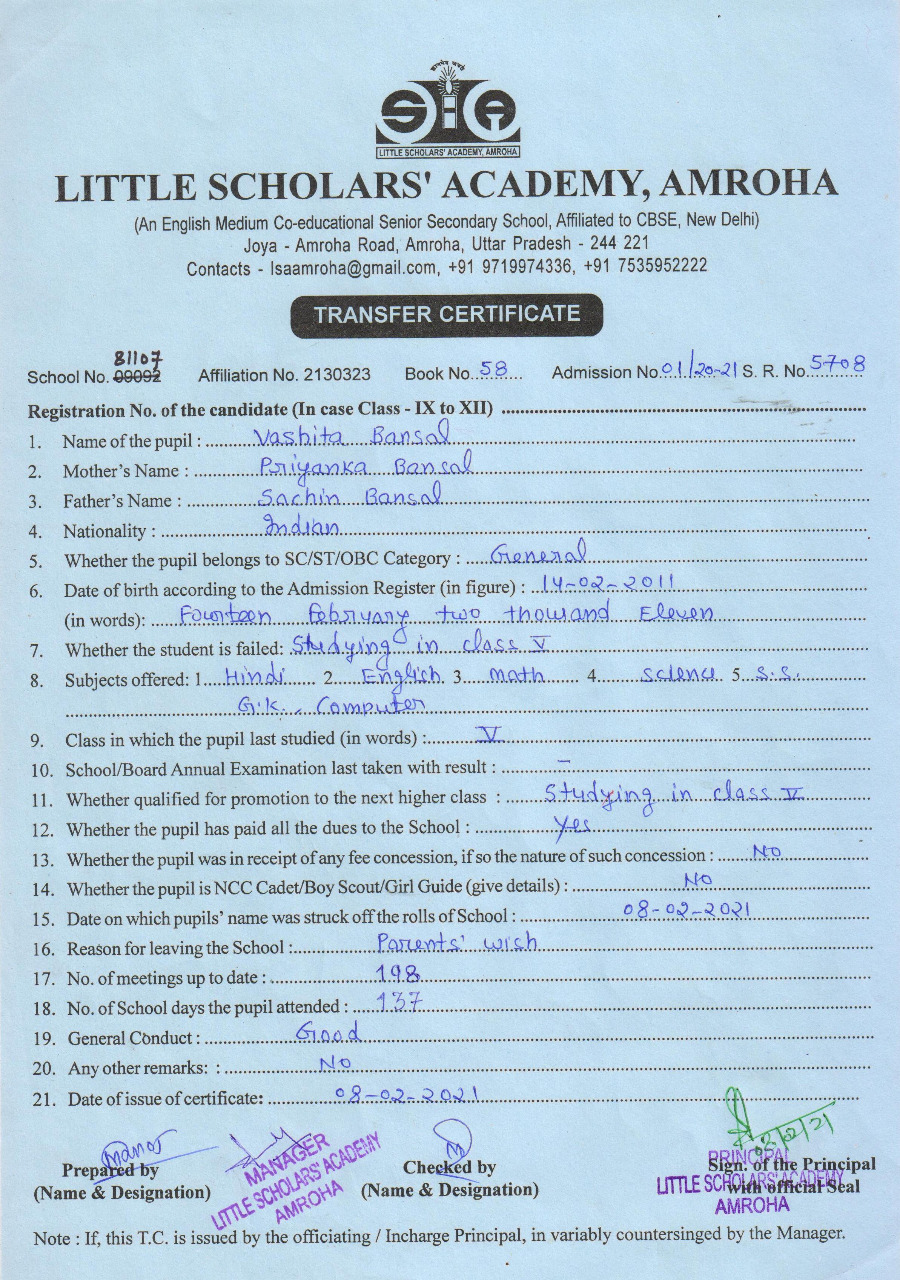 LITTLE SCHOLARS' ACADEMY, AMROHA
LITTLE SCHOLARS' ACADEMY, AMROHA
(An English Medium Co-educational Senior Secondary School, Affiliated to CBSE, New Delhi)
Joya - Amroha Road, Amroha, Uttar Pradesh - 244 221
Contacts - lsaamroha@gmail.com, +91 9719974336, +91 7535952222
TRANSFER CERTIFICATE
81107
School No. 09092 Affiliation No. 2130323 Book No. 58 Admission No. 01/20-21 S. R. No. 5708
Registration No. of the candidate (In case Class - IX to XII)
1. Name of the pupil : Vashita Bansal
2. Mother's Name : Priyanka Bansal
3. Father's Name : Sachin Bansal
4. Nationality : Indian
5. Whether the pupil belongs to SC/ST/OBC Category : General
6. Date of birth according to the Admission Register (in figure) : 14-02-2011
(in words): Fourteen February two thousand Eleven
7. Whether the student is failed: Studying in class V
8. Subjects offered: 1. Hindi 2. English 3. math 4. science 5. S.S.
G.K. Computer
9. Class in which the pupil last studied (in words) : V
10. School/Board Annual Examination last taken with result : –
11. Whether qualified for promotion to the next higher class : Studying in class V
12. Whether the pupil has paid all the dues to the School : Yes
13. Whether the pupil was in receipt of any fee concession, if so the nature of such concession : No
14. Whether the pupil is NCC Cadet/Boy Scout/Girl Guide (give details) : No
15. Date on which pupils' name was struck off the rolls of School : 08-02-2021
16. Reason for leaving the School : Parents' wish
17. No. of meetings up to date : 198
18. No. of School days the pupil attended : 137
19. General Conduct : Good
20. Any other remarks: : No
21. Date of issue of certificate: 08-02-2021
Manoj
08/2/21
Prepared by
(Name & Designation)
MANAGER
LITTLE SCHOLARS' ACADEMY
AMROHA
Checked by
(Name & Designation)
Sign. of the Principal
with official Seal
PRINCIPAL
LITTLE SCHOLARS' ACADEMY
AMROHA
Note : If, this T.C. is issued by the officiating / Incharge Principal, in variably countersinged by the Manager.